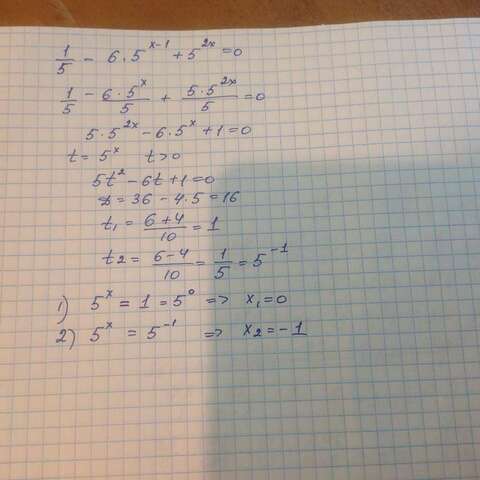 1/5 - 6·5^(x-1) + 5^(2x) = 0
1/5 - 6·5^x/5 + 5·5^(2x)/5 = 0
5·5^(2x) - 6·5^x + 1 = 0
t = 5^x t > 0
5t² - 6t + 1 = 0
D = 36 - 4·5 = 16
t₁ = (6+4)/10 = 1
t₂ = (6-4)/10 = 1/5 = 5^(-1)
1) 5^x = 1 = 5^0 => x₁ = 0
2) 5^x = 5^(-1) => x₂ = -1